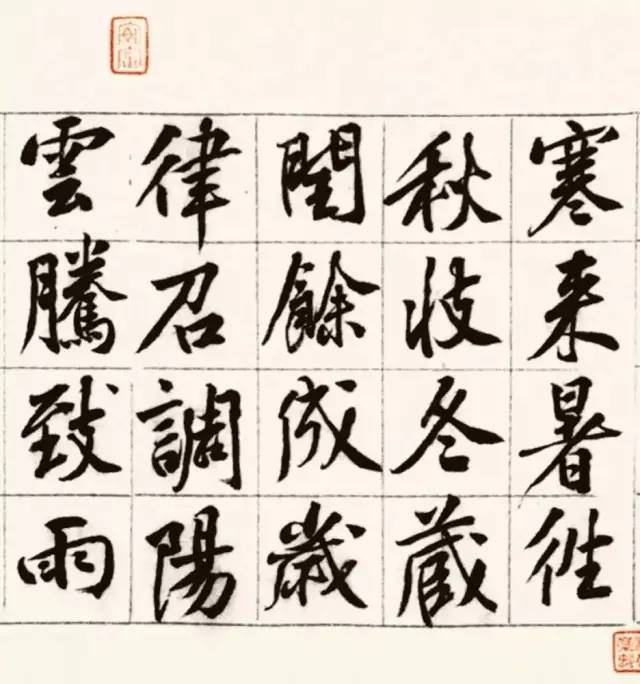 寒来暑往
秋收冬蔵
閏餘成歳
律召調陽
雲騰致雨